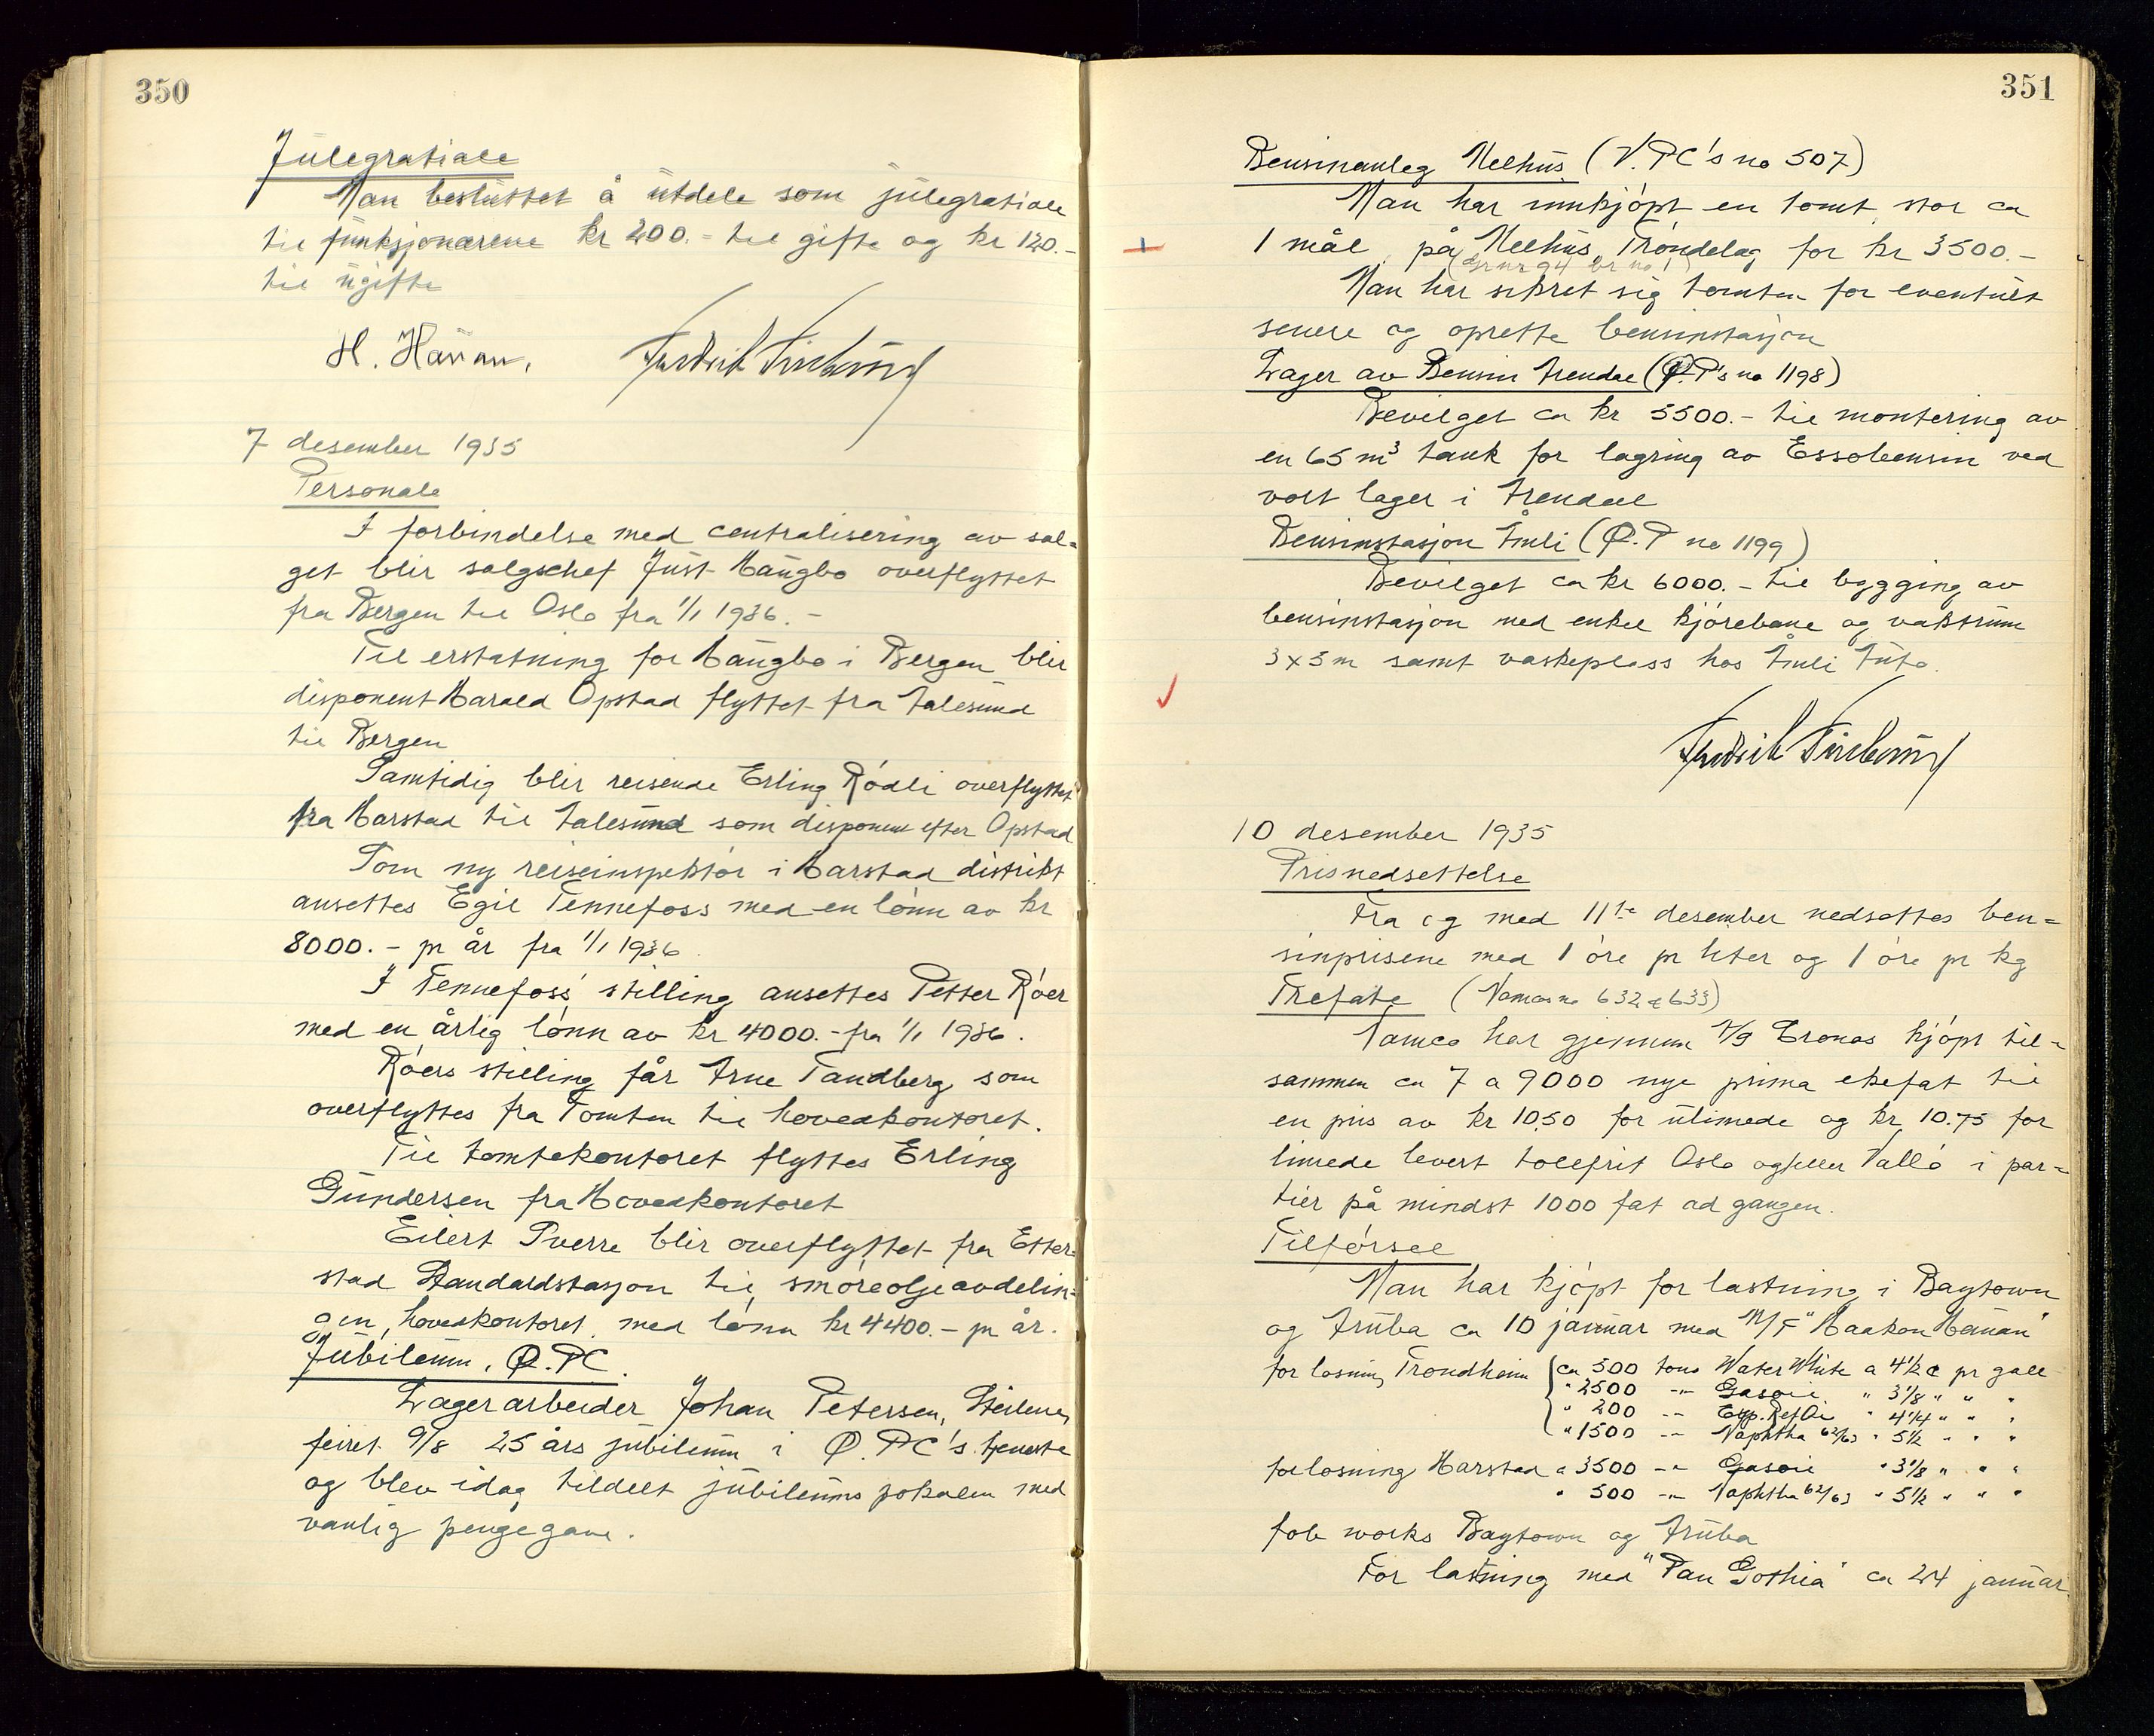 350
Julegratiale
Man besluttet å utdele som julegratiale
til funksjonærene kr 200.- til gifte og kr 120.-
til ugifte
H. Hanan.
7 desember 1935
Personale
I forbindelse med centralisering av sal-
get blir salgschef Just Haugbo overflyttet
fra Bergen til Oslo fra 1/1 1936.-
Til erstatning for Haugbo i Bergen blir
disponent Harald Opstad flyttet fra Aalesund
til Bergen
Samtidig blir reisende Erling Rødli overflyttet
fra Harstad til Aalesund som disponent efter Opstad
Som ny reiseinspektør i Harstad distrikt
ansettes Egil Tennefoss med en lønn av kr
8000.- pr år fra 1/1 1936
I Tennefoss' stilling ansettes Petter Røer
med en årlig lønn av kr 4000.- fra 1/1 1936.
Røers stilling får Arne Tandberg som
overflyttes fra Tomten til hovedkontoret.
Til tomtekontoret flyttes Erling
Gundersen fra Hovedkontoret
Eilert Sverre blir overflyttet fra Etter-
stad Standardstasjon til smøreoljeavdelin-
gen, hovedkontoret, med lønn kr 4400.- pr år.
Jubileum, Ø.PC.
Lagerarbeider Johan Petersen, Steilene,
feiret 9/8 25 års jubileum i Ø.PC's tjeneste
og blev idag tildelt jubileums pokalen med
vanlig pengegave.
351
Bensinanleg Melhus (V.PC's no 507)
Man har innkjøpt en tomt, stor ca
1 mål, på Melhus, Trøndelag for kr 3500.-
(gr nr 94 br no 1)
Man har sikret sig tomten for eventuelt
senere og oprette bensinstasjon
Lager av Bensin Arendal (Ø.P's no 1198)
Bevilget ca kr 5500.- til montering av
en 65 m³ tank for lagring av Essobensin ved
vort lager i Arendal
Bensinstasjon Åmli (Ø.P no 1199)
Bevilget ca kr 6000.- til bygging av
bensinstasjon med enkel kjørebane og vaktrum
3x3m samt vaskeplass hos Åmli Auto.
10 desember 1935
Prisnedsettelse
Fra og med 11te desember nedsettes ben-
sinprisene med 1 øre pr liter og 1 øre pr kg
Trefate (Vamcos no 632 & 633)
Vamco har gjennum A/S Cronos kjøpt til-
sammen ca 7 a 9000 nye prima ekefat til
en pris av kr 10.50 for ulimede og kr 10.75 for
limede levert tollfrit Oslo og/eller Vallø i par-
tier på mindst 1000 fat ad gangen.
Tilførsel
Man har kjøpt for lastning i Baytown
og Aruba ca 10 januar med M/T "Haakon Hauan"
for losning Trondheim { ca 500 tons Water White a 4½ c pr gall
" 2500 -"- Gasoil " 3⅛ " " "
" 200 -"- Exp. Ref Oil " 4¼ " " "
" 1500 -"- Naphtha 62/63 " 5½ " " "
for losning Harstad " 3500 -"- Gasoil " 3⅛ " " "
" 500 -"- Naphtha 62/63 " 5½ " " "
fob works Baytown og Aruba
For lastning med "Pan Gothia" ca 24 januar